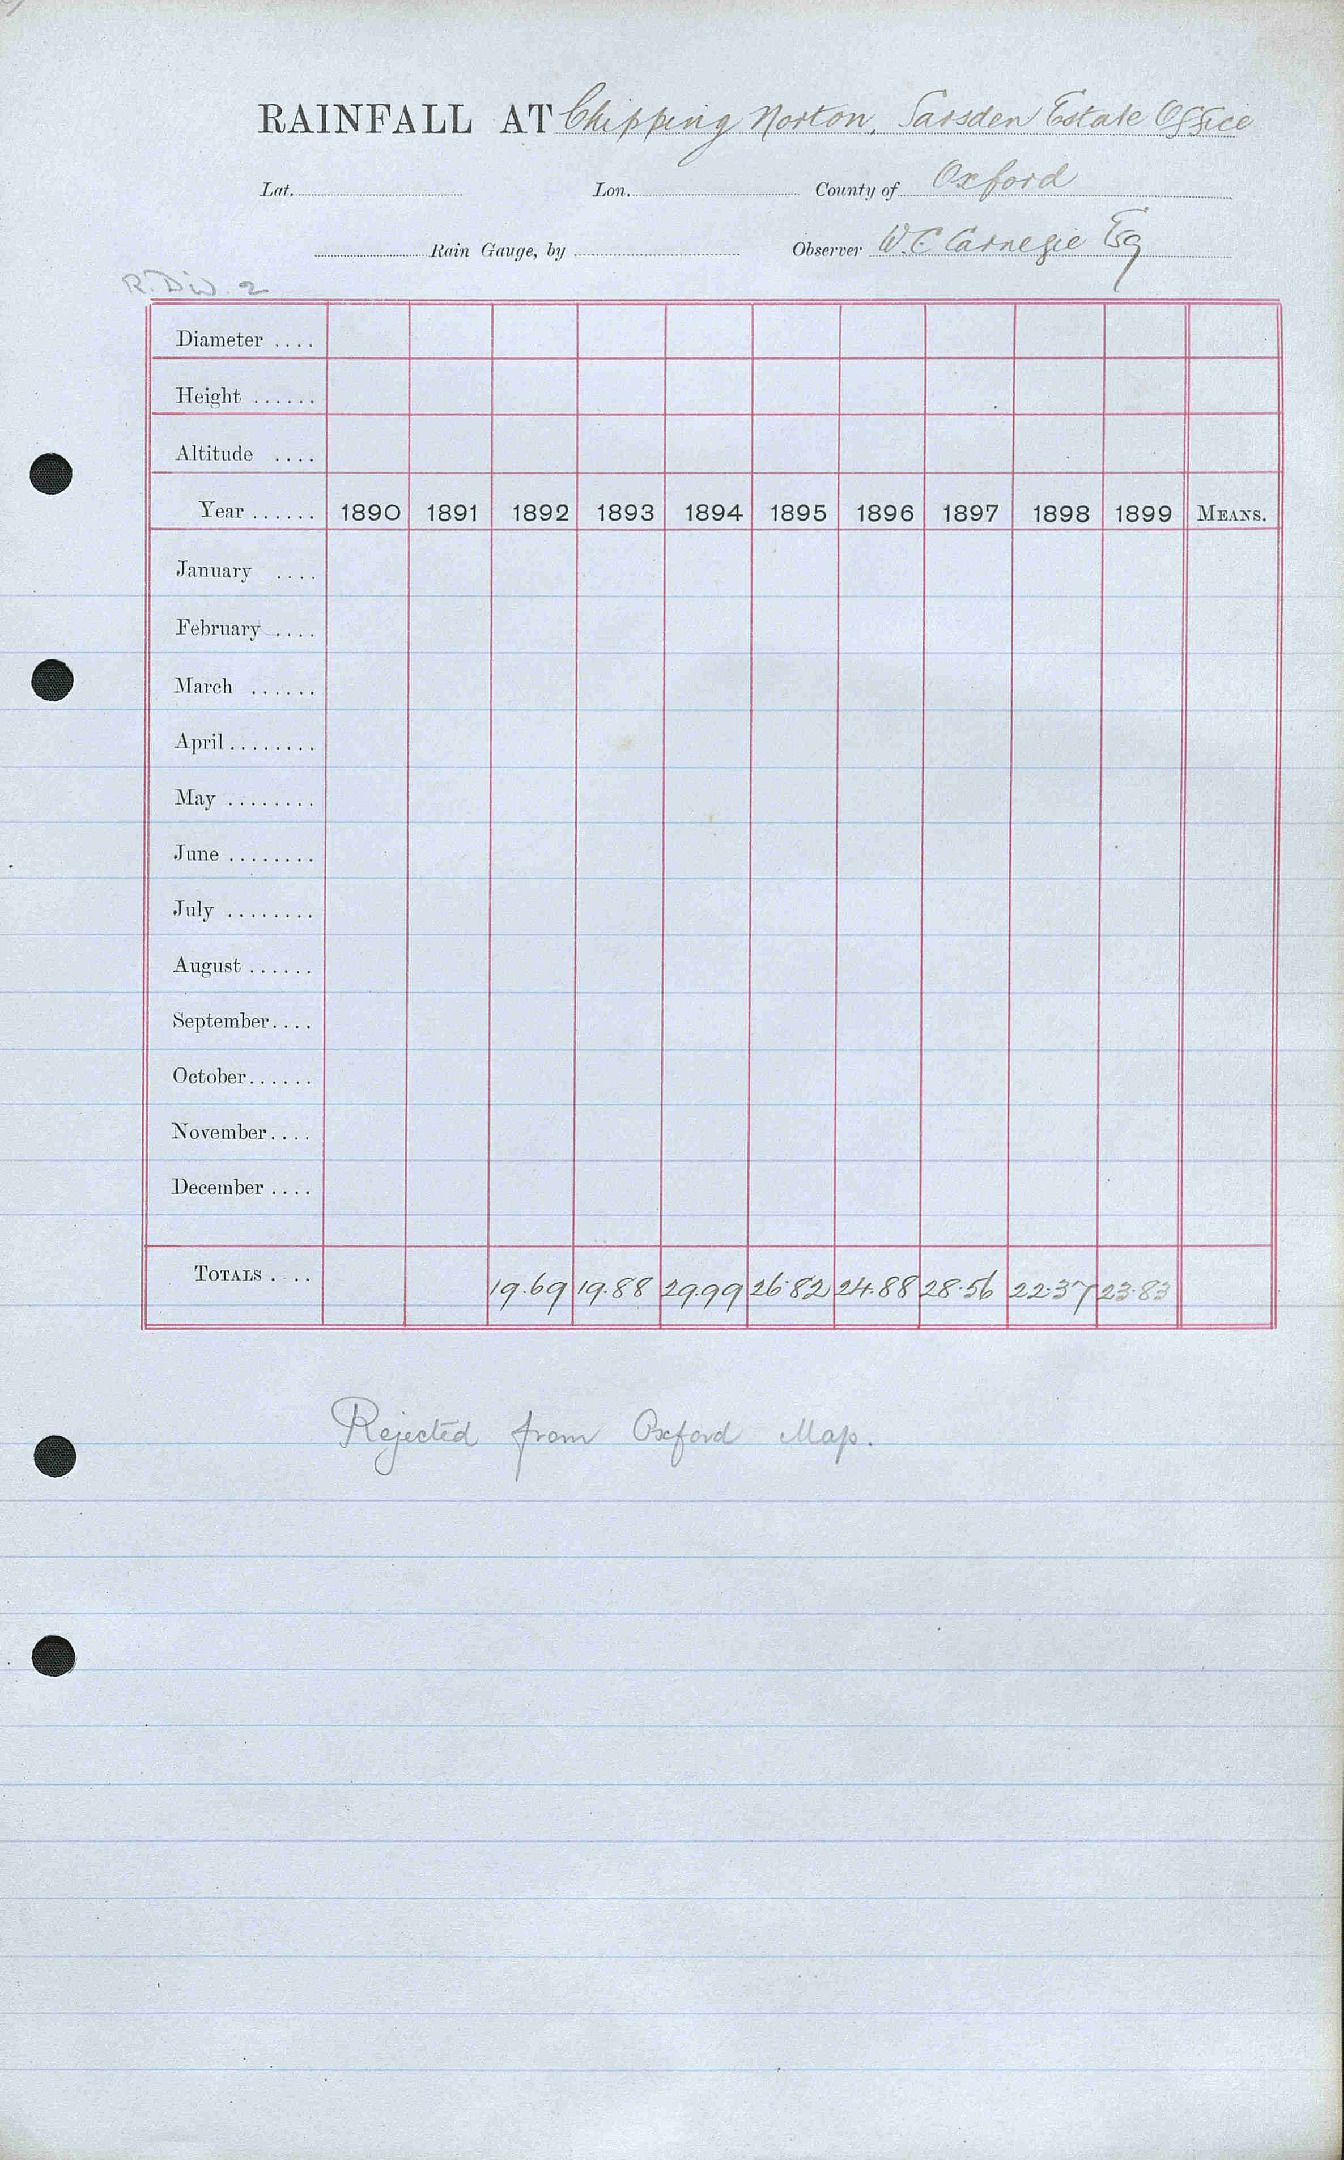 RAINFALL AT Chipping Norton, Sarsden Estate Office
Lat. Lon. County of Oxford
Rain Gauge, by Observer W. C. Carnegie Esq
R. Div. 2
Diameter ....
Height ......
Altitude ....
Year ...... 1890 1891 1892 1893 1894 1895 1896 1897 1898 1899 MEANS.
January ....
February ....
March ......
April ........
May ........
June ........
July ........
August ......
September ....
October ......
November ....
December ....
TOTALS .... 19.69 19.88 29.99 26.82 24.88 28.56 22.37 23.83
Rejected from Oxford Map.